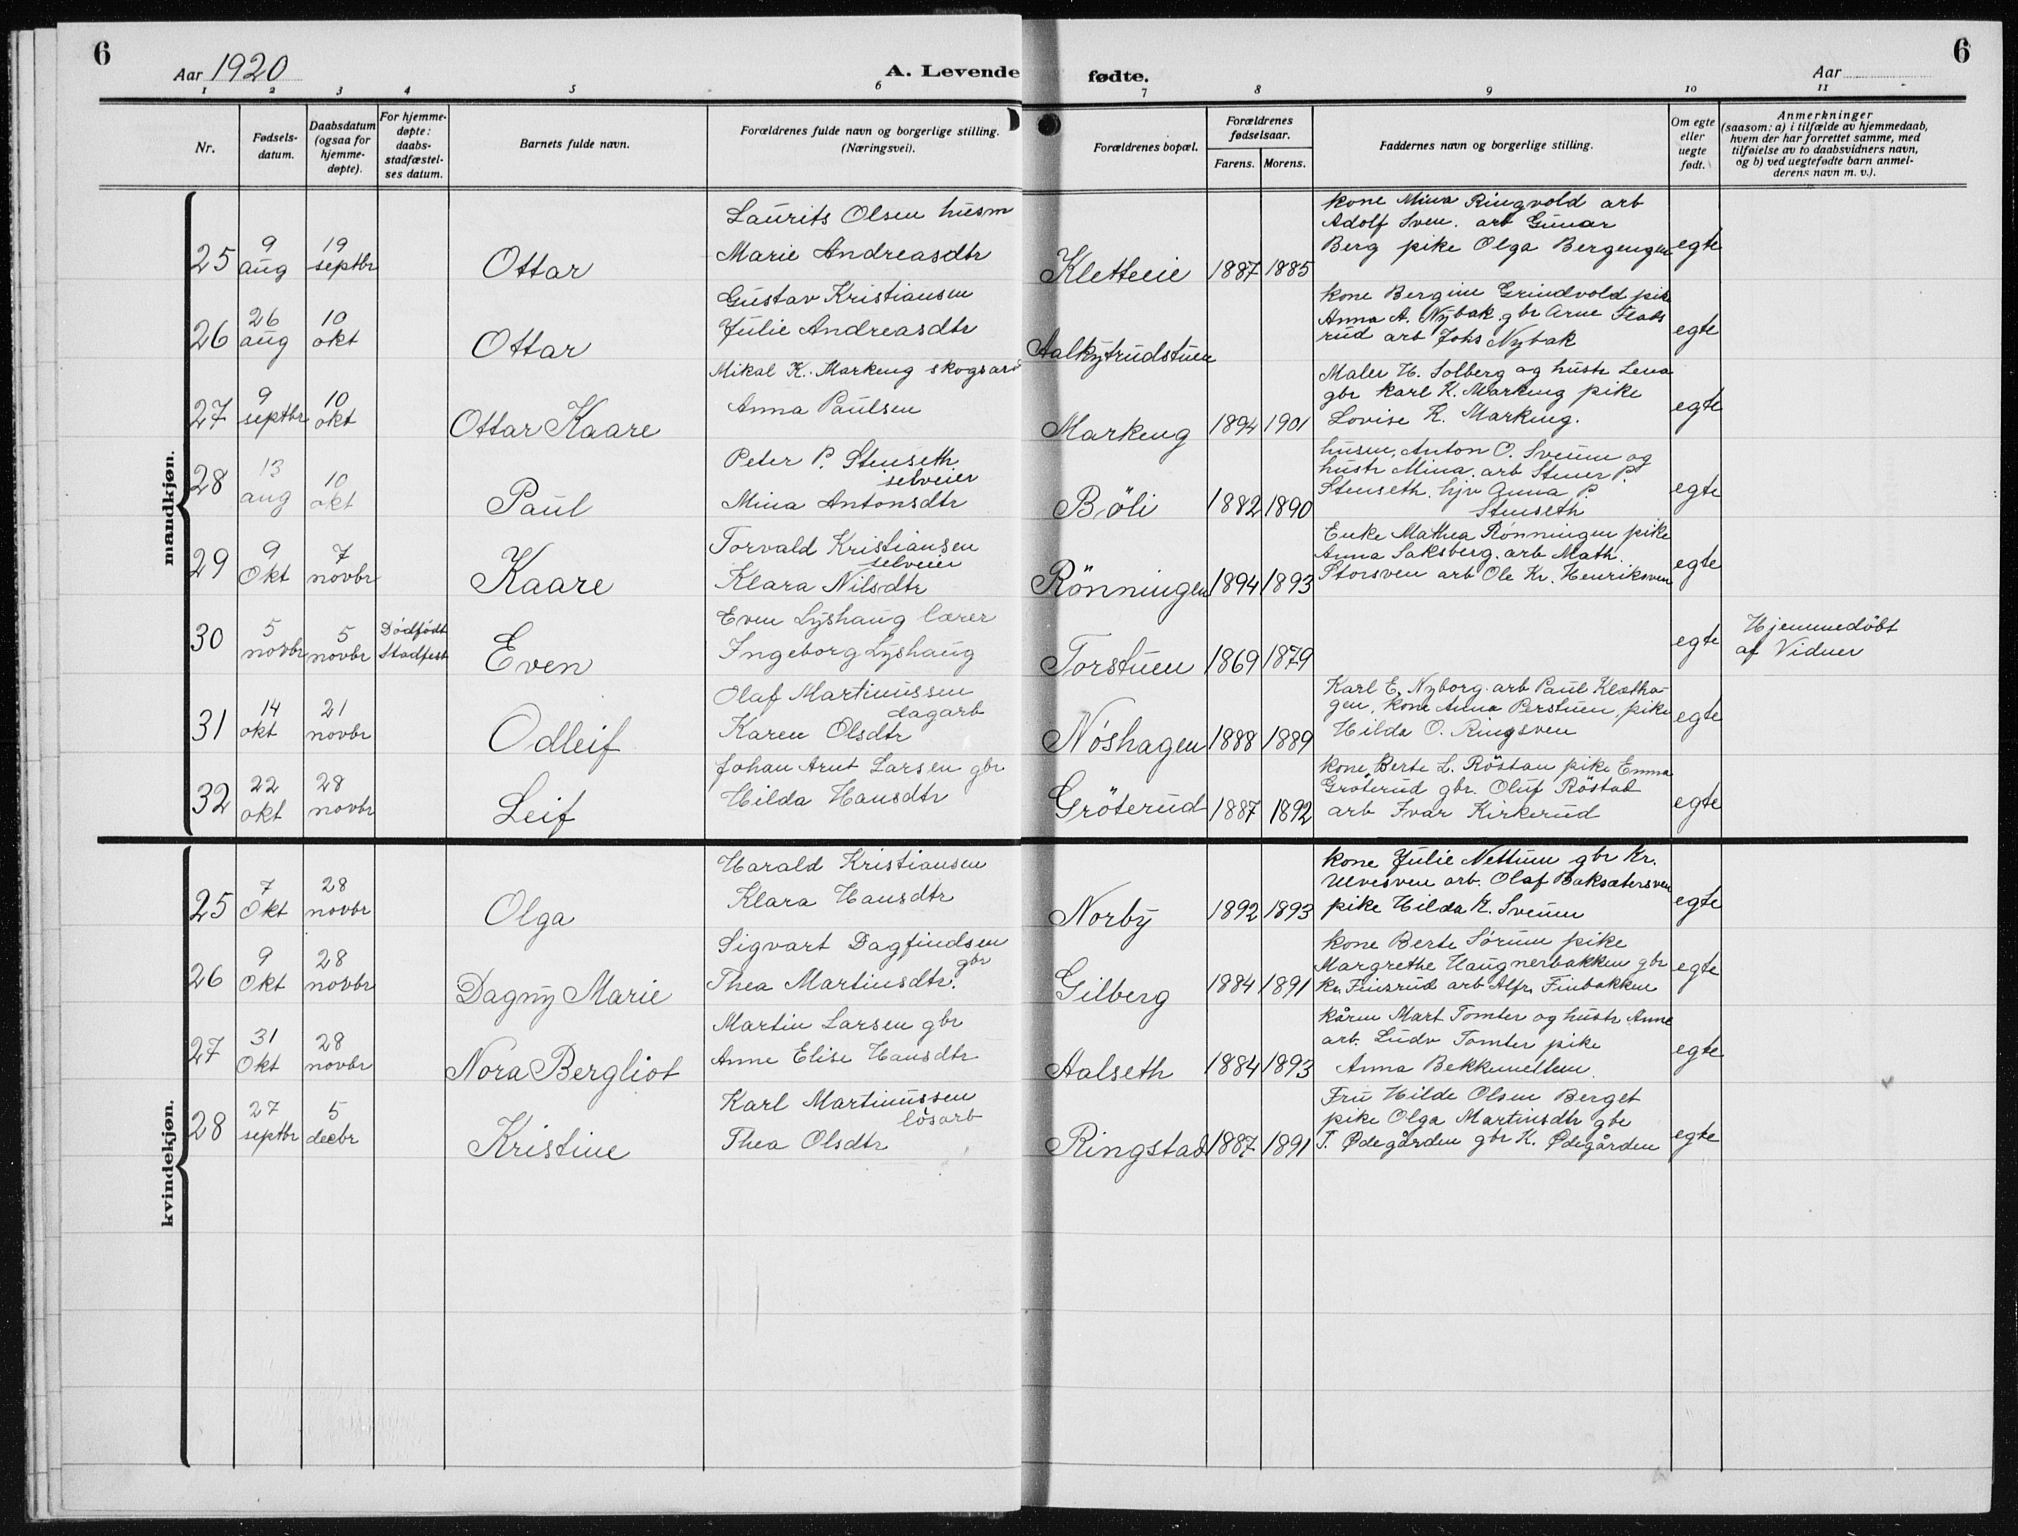 6
Aar 1920
A. Levende fødte.
Aar
6
1 2 3 4 5 6 7 8 9 10 11
Nr.
Fødsels-
datum.
Daabsdatum
(ogsaa for
hjemme-
døpte).
For hjemme-
døpte:
daabs-
stadfæstel-
ses datum.
Barnets fulde navn.
Forældrenes fulde navn og borgerlige stilling.
(Næringsvei).
Forældrenes bopæl.
Forældrenes
fødselsaar.
Farens. Morens.
Faddernes navn og borgerlige stilling.
Om egte
eller
uegte
født.
Anmerkninger
(saasom: a) i tilfælde av hjemmedaab,
hvem der har forrettet samme, med
tilføielse av to daabsvidners navn,
og b) ved uegtefødte barn anmel-
derens navn m. v.).
mandkjøn.
25
9
aug
19
septbr
Ottar
Laurits Olsen husm
Marie Andreasdtr
Kletteie
1887 1885
kone Mina Ringvold arb
Adolf Sven. arb Gunar
Berg pike Olga Bergengen
egte
26
26
aug
10
okt
Ottar
Gustav Kristiansen
Julie Andreasdtr
Aalkytrudstuen
kone Bergine Grindvold pike
Anna A. Nybak gbr Arne
rud arb Johs Nybak
egte
27
9
septbr
10
okt
Ottar Kaare
Mikal K. Markeng skogsarb
Anna Paulsen
Markeng
1894 1901
Maler H. Solberg og hustr Lena
gbr Karl K. Markeng pike
Lovise K. Markeng.
egte
28
13
aug
10
okt
Paul
Peter P. Stenseth
selveier
Mina Antonsdtr
Böli
1882 1890
husm. Anton O. Sveum og
hustr Mina. arb Stener P.
Stenseth. hjv Anna P.
Stenseth
egte
29
9
Okt
7
novbr
Kaare
Torvald Kristiansen
selveier
Klara Nilsdtr
Rönningen
1894 1893
Enke Mathea Rønningen pike
Anna Saksberg. arb Math.
Storsven arb Ole Kr. Henriksven
egte
30
5
novbr
5
novbr
Dødfødt
Stadfest
Even
Even Lyshaug lærer
Ingeborg Lyshaug
Torstuen
1869 1879
egte
Hjemmedöbt
af Vidner
31
14
okt
21
novbr
Odleif
Olaf Martinussen
dagarb
Karen Olsdtr
Nøshagen
1888 1889
Karl E. Nyborg. arb Paul Kletha-
gen, kone Anna Perstuen, pike
Hilda O. Ringsven
egte
32
22
okt
28
novbr
Leif
Johan Arnt Larsen gbr
Hilda Hansdtr
Gröterud
1887 1892
kone Berte L. Röstau pike Emma
Gröterud gbr. Oluf Röstad
arb Ivar Kirkerud
egte
kvindekjøn.
25
7
Okt
28
novbr
Olga
Harald Kristiansen
Klara Hansdtr
Norby
1892 1893
kone Julie Nettum gbr Kr.
Ulvesven arb. Olaf Baksætersven
pike Hilda K. Sveum
egte
26
9
Okt
28
novbr
Dagny Marie
Sigvart Dagfindsen
gbr
Thea Martinsdtr.
Gilberg
1884 1891
kone Berte Sørum pike
Margrethe Haugnerbakken gbr
Kr. Finsrud arb Alfr. Finbakken
egte
27
31
Okt
28
novbr
Nora Bergliot
Martin Larsen gbr
Anne Elise Hansdtr
Aalseth
1884 1893
kårm Mart Tomter og hustr Anne
arb. Ludv Tomter pike
Anna Bekkemellem.
egte
28
27
septbr
5
decbr
Kristine
Karl Martinussen
løsarb
Thea Olsdtr
Ringstad
1887 1891
Fru Hilde Olsen Berget
pike Olga Martinsdtr gbr
T. Ødegården gbr K. Ødegården
egte